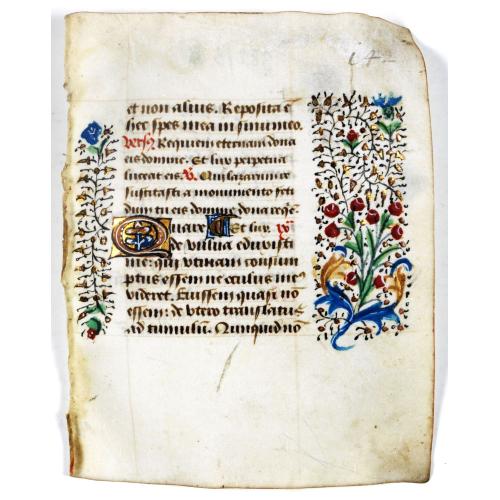 et non alius. Reposita ē
hec spes mea in sinu meo.
Vers⁹ Requiem eternam dona
eis domine. Et lux perpetua
luceat eis. R̃. Qui lazarum re
suscitasti a monumento feti
dum tu eis domine dona reqē.
Quare Et lux. ix
de vulva eduxisti
me: qui utinam consum
ptus essem ne oculus me
videret. Fuissem quasi nō
essem: de utero translatus
ad tumulum. Nunquid no